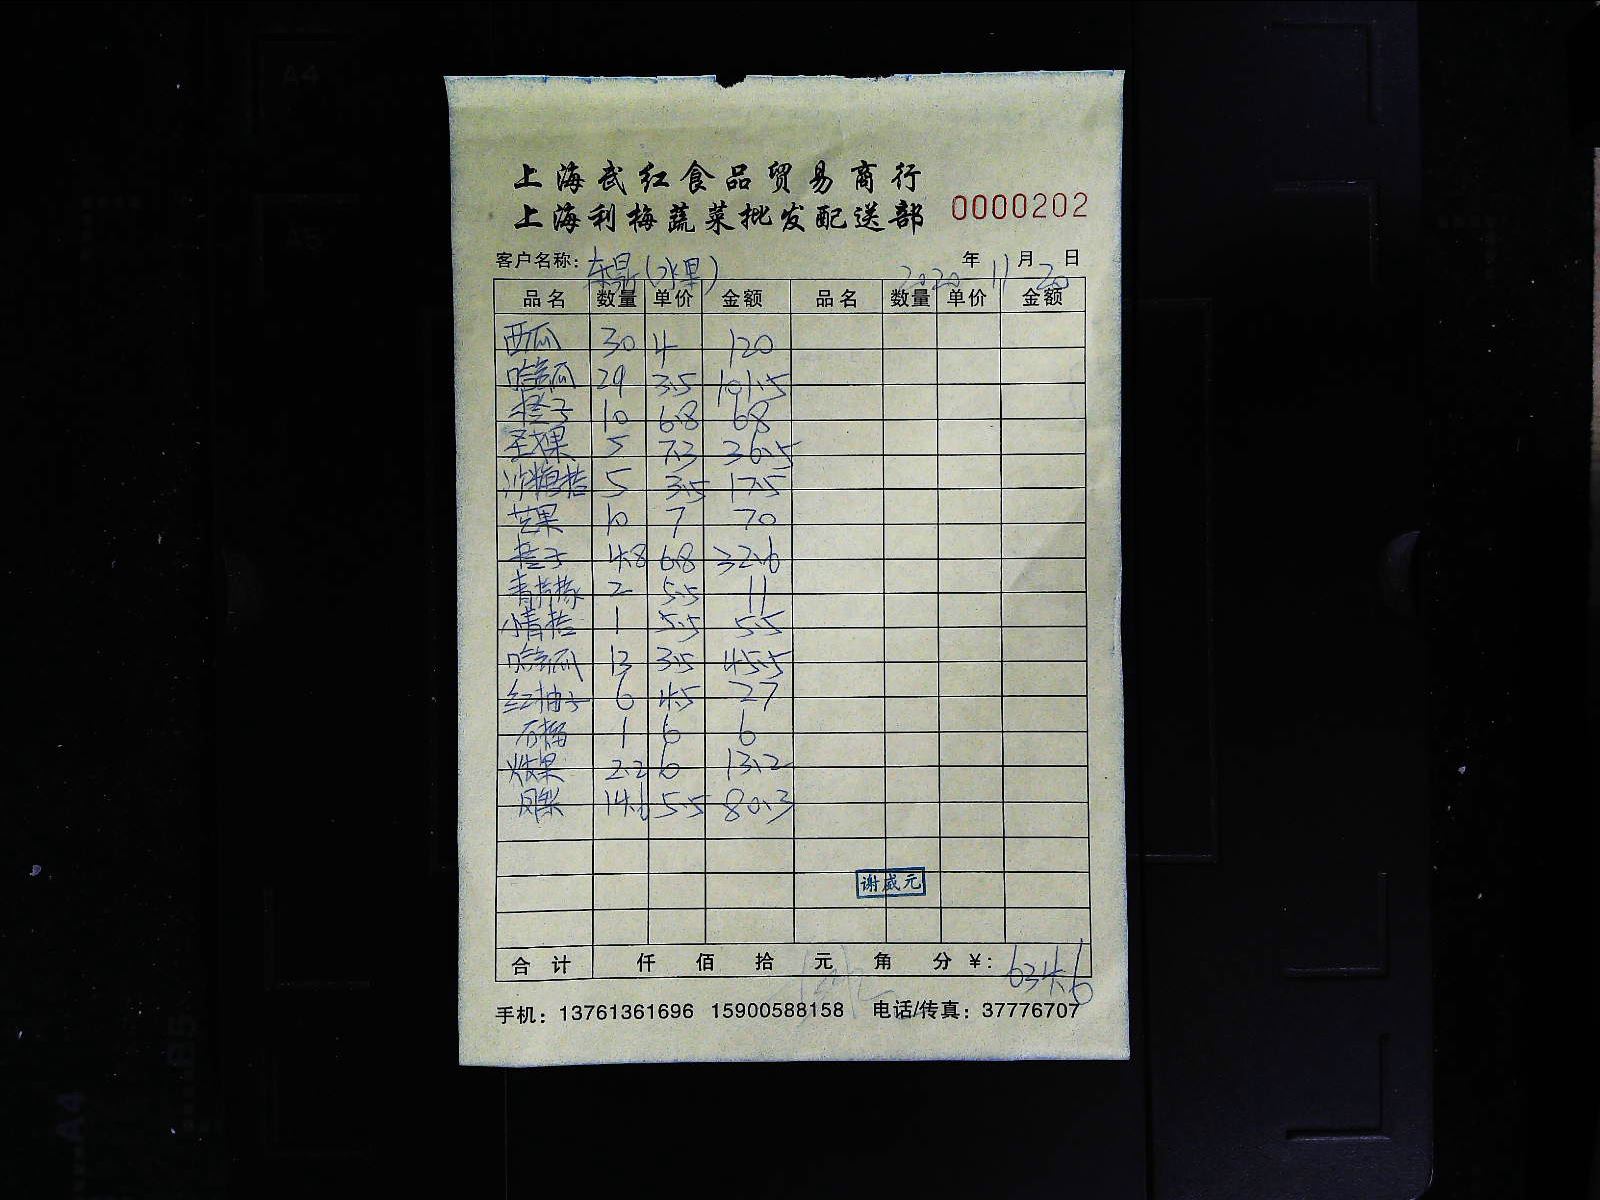 上海武红食品贸易商行
上海利梅蔬菜批发配送部 0000202
客户名称: 东鼎(水果) 2020年11月20日
品名 数量 单价 金额 品名 数量 单价 金额
西瓜 30 4 120
哈蜜瓜 29 3.5 101.5
橙子 10 6.8 68
圣女果 5 7.3 36.5
沙糖桔 5 3.5 17.5
芒果 10 7 70
橙子 4.8 6.8 32.6
青苹 2 5.5 11
小青桔 1 5.5 5.5
哈蜜瓜 13 3.5 45.5
红柚子 6 4.5 27
石榴 1 6 6
火龙果 2.2 6 13.2
凤梨 14.6 5.5 80.3
谢威元
合计 仟 佰 拾 元 角 分 ¥: 634.6
手机: 13761361696 15900588158 电话/传真: 37776707
A4
A5
B5
A4